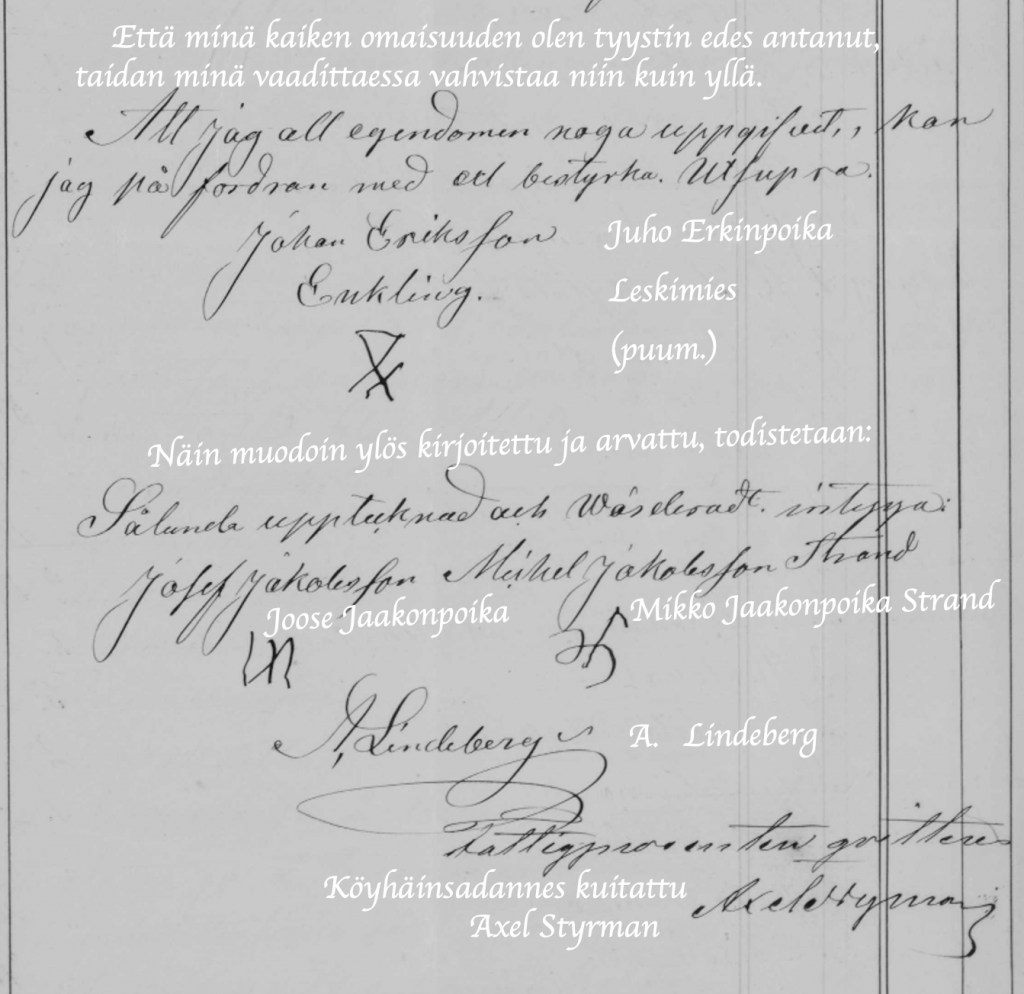 Että minä kaiken omaisuuden olen tyystin edes antanut,
taidan minä vaadittaessa vahvistaa niin kuin yllä.
Att jag all egendomen noga uppgifvit, kan
jag på fordran med ed bestyrka. Utsupra.
Johan Eriksson Juho Erkinpoika
Enkling. Leskimies
(puum.)
Näin muodoin ylös kirjoitettu ja arvattu, todistetaan:
Sålunda upptecknad och Wärderadt. intyga:
Josef Jakobsson Mickel Jakobsson Strand
Joose Jaakonpoika Mikko Jaakonpoika Strand
A. Lindeberg A. Lindeberg
Fattigprocenten qvitteras
Köyhäinsadannes kuitattu
Axel Styrman
Axel Styrman